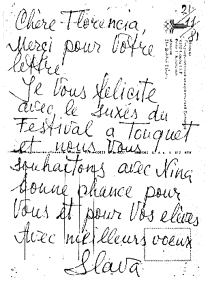 Chère Florencia,
Merci pour Votre
lettre!
Je Vous féliste
avec le suxès du
Festival a Touquet
et nous Vous
souhaitons avec Nina
bonne chance pour
Vous et pour Vos elèves
Avec meilleurs voeux
Slava